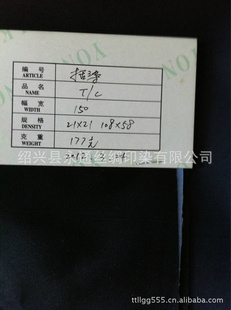 YONG
编号 ARTICLE
品名 NAME T/C
幅宽 WIDTH 150
规格 DENSITY 21X21 108X58
克重 WEIGHT 177克
绍兴县永佳丝纺印染有限公司
ttllgg555.cn.alibaba.com